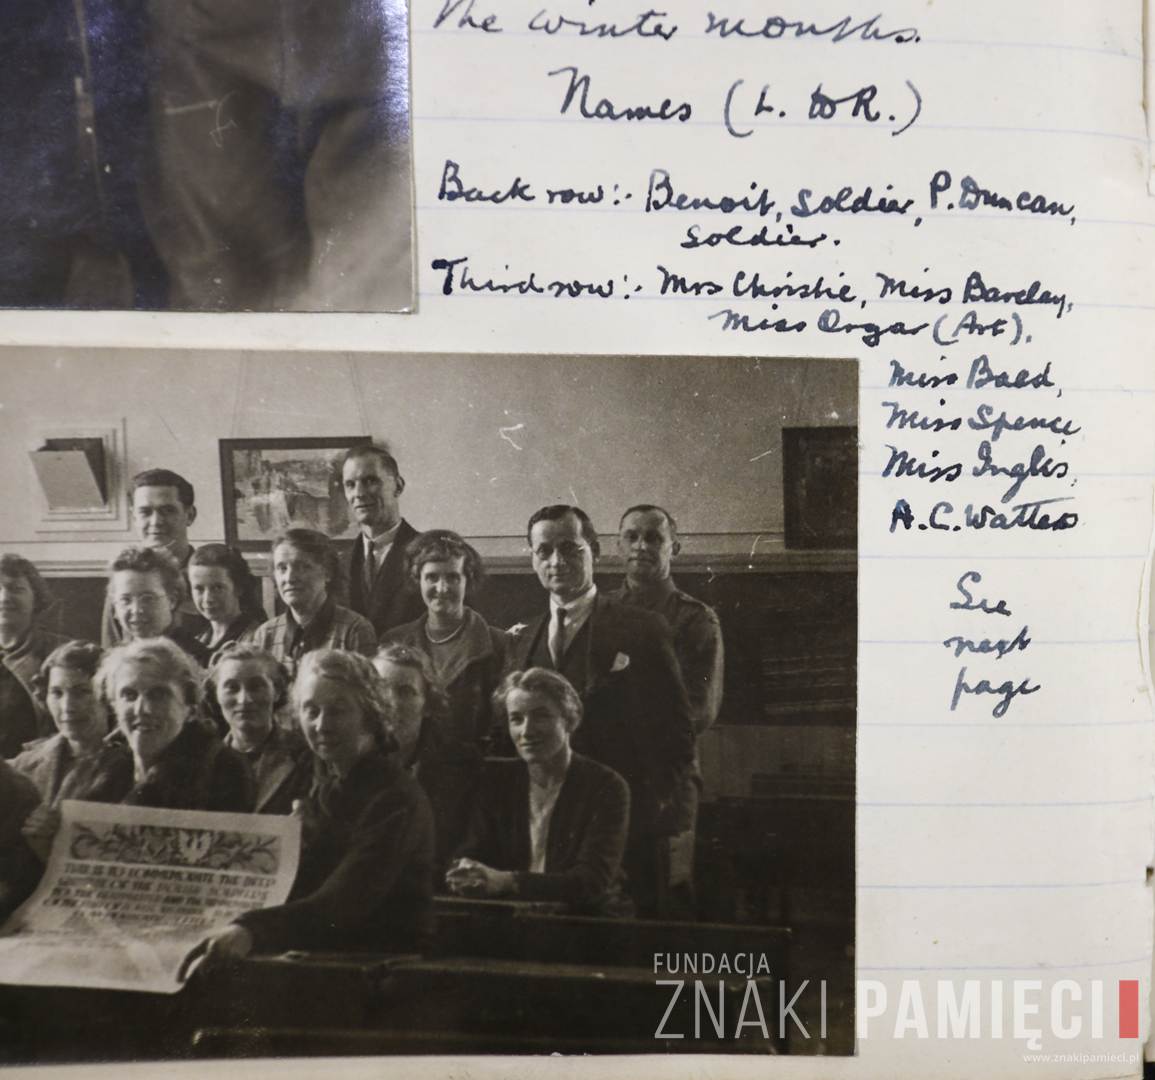 The winter months.
Names (L. to R.)
Back row:- Benoit, Soldier, P. Duncan,
Soldier.
Third row:- Mrs Christie, Miss Barclay,
Miss Orgar (Art),
Miss Bald,
Miss Spence,
Miss Inglis,
A.C. Watters
See
next
page
THIS IS TO COMMEMORATE THE DEEP
OF THE POLISH SOLDIERS
TO THE HEADMASTER AND THE
FUNDACJA
ZNAKI PAMIĘCI
www.znakipamieci.pl